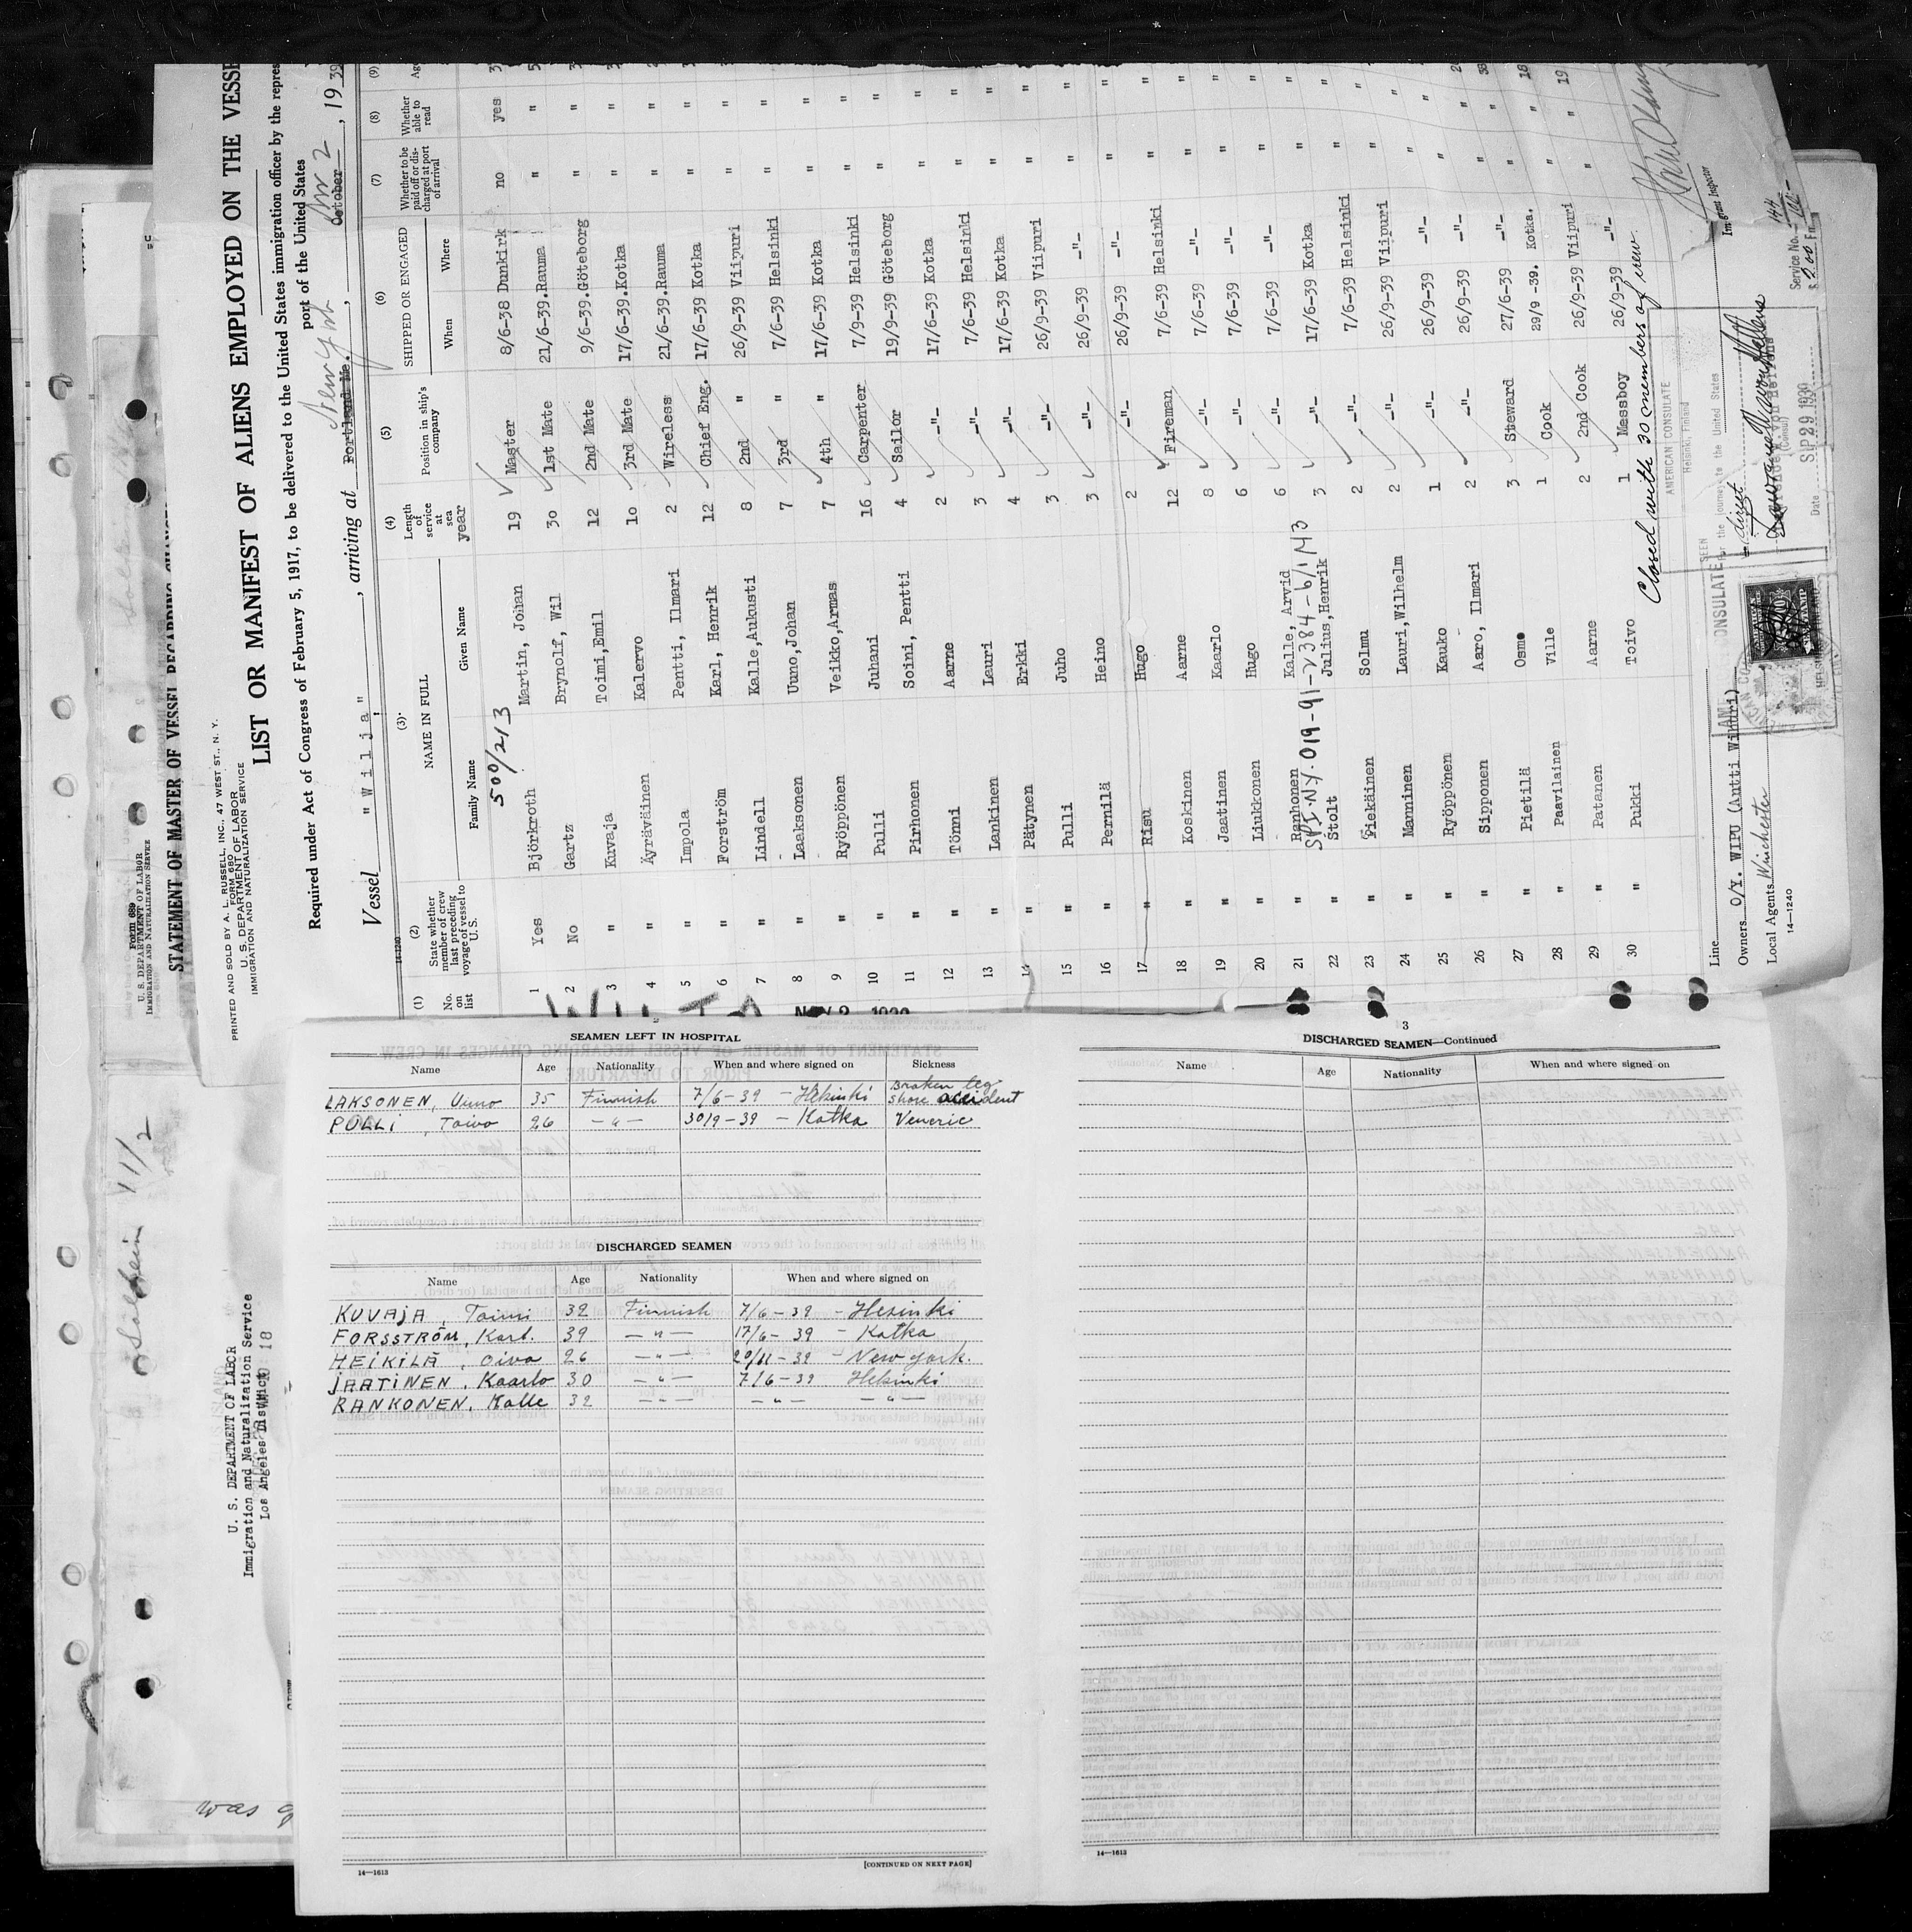 STATEMENT OF MASTER OF VESSEL REGARDING CHANGES
Form 689
U. S. DEPARTMENT OF LABOR
IMMIGRATION AND NATURALIZATION SERVICE
PRINTED AND SOLD BY A. L. RUSSELL, INC., 47 WEST ST., N. Y.
FORM 680
U. S. DEPARTMENT OF LABOR
IMMIGRATION AND NATURALIZATION SERVICE
LIST OR MANIFEST OF ALIENS EMPLOYED ON THE VESSE
Required under Act of Congress of February 5, 1917, to be delivered to the United States immigration officer by the repres
port of the United States
Vessel "Wilja", arriving at Portland Me. New York, October Nov 2, 1939
(1) No. on list (2) State whether member of crew last preceding voyage of vessel to U. S. (3) NAME IN FULL Family Name Given Name (4) Length of service at sea year (5) Position in ship's company (6) SHIPPED OR ENGAGED When Where (7) Whether to be paid off or discharged at port of arrival (8) Whether able to read (9) Ag
500/213
1 Yes Björkroth Martin, Johan 19 Master 8/6-38 Dunkirk no yes 3
2 No Gartz Brynolf, Wil 30 1st Mate 21/6-39. Rauma " " 5
3 " Kuvaja Toimi, Emil 12 2nd Mate 9/6-39. Göteborg " " 3
4 " Äyräväinen Kalervo 10 3rd Mate 17/6-39. Kotka " "
5 " Impola Pentti, Ilmari 2 Wireless 21/6-39. Rauma " "
6 " Forström Karl, Henrik 12 Chief Eng. 17/6-39 Kotka " "
7 " Lindell Kalle, Aukusti 8 2nd " 26/9-39 Viipuri " "
8 " Laaksonen Uuno, Johan 7 3rd " 7/6-39 Helsinki " "
9 " Ryöppönen Veikko, Armas 7 4th " 17/6-39 Kotka " "
10 " Pulli Juhani 16 Carpenter 7/9-39 Helsinki " "
11 " Pirhonen Soini, Pentti 4 Sailor 19/9-39 Göteborg " "
12 " Tönni Aarne 2 -"- 17/6-39 Kotka " "
13 " Lankinen Lauri 3 -"- 7/6-39 Helsinki " "
14 " Pätynen Erkki 4 -"- 17/6-39 Kotka " "
15 " Pulli Juho 3 -"- 26/9-39 Viipuri " "
16 " Pernilä Heino 3 -"- 26/9-39 -"- " "
17 " Risu Hugo 2 -"- 26/9-39 -"- " "
18 " Koskinen Aarne 12 Fireman 7/6-39 Helsinki " "
19 " Jaatinen Kaarlo 8 -"- 7/6-39 -"- " "
20 " Liukkonen Hugo 6 -"- 7/6-39 -"- " "
21 " Ranhonen Kalle, Arvid 6 -"- 7/6-39 -"- " "
SPI.NY.019-91-2384-6/1/43
22 " Stolt Julius, Henrik 3 -"- 17/6-39 Kotka " "
23 " Piekäinen Solmu 2 -"- 7/6-39 Helsinki " "
24 " Manninen Lauri, Wilhelm 2 -"- 26/9-39 Viipuri " "
25 " Ryöppönen Kauko 1 -"- 26/9-39 -"- " "
26 " Sipponen Aaro, Ilmari 2 -"- 26/9-39 -"- " "
27 " Pietilä Osmo 3 Steward 27/6-39 -"- " "
28 " Paavilainen Ville 1 Cook 29/9-39. Kotka. " " 18
29 " Patanen Aarne 2 2nd Cook 26/9-39 Viipuri " " 19
30 " Pukki Toivo 1 Messboy 26/9-39 -"-
Closed with 30 members of crew.
AMERICAN CONSULATE
Helsinki, Finland
SEEN
For the journey to the United States
direct
(Consul)
Date SEP 29 1939
Service No. 144
Immigrant Inspector
Line
Owners O/Y. WIPU (Antti Wihuri)
Local Agents Winchester
14—1240
NOV 2 1939
U. S. DEPARTMENT OF LABOR
Immigration and Naturalization Service
Los Angeles District
18
11/2
was
SEAMEN LEFT IN HOSPITAL
Name Age Nationality When and where signed on Sickness
LAKSONEN, Uuno 35 Finnish 7/6-39 - Helsinki Broken leg shore accident
PULLI, Toivo 26 -"- 30/9-39 - Kotka Veneric
DISCHARGED SEAMEN
Name Age Nationality When and where signed on
KUVAJA, Toimi 32 Finnish 7/6-39 - Hesinki
FORSSTRÖM, Karl. 39 -"- 17/6-39 - Kotka
HEIKILÄ, Oiva 26 -"- 20/11-39 - New York.
JAATINEN, Kaarlo 30 -"- 7/6-39 Helsinki
RANKONEN, Kalle 32 -"- -"- -"-
14—1613
[CONTINUED ON NEXT PAGE]
3
DISCHARGED SEAMEN—Continued
Name Age Nationality When and where signed on
14—1613